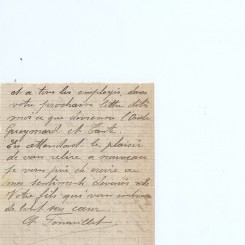 et a tous les employés, dans
votre prochaine lettre dites
moi ce que devienne l'Oncle
Gueymard et Tant.
En attendant le plaisir
de vous relire a nouveau
je vous prie de croire a
mes sentiments dévoués et
Votre fils qui vous embrasse
de tout son cœur